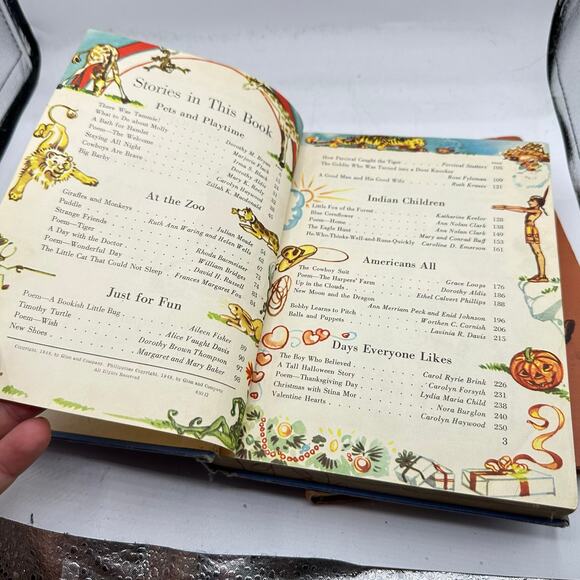 Stories in This Book
Pets and Playtime
There Was Tammie! Dorothy M. Bryan
What to Do about Molly Marjorie Flack
A Bath for Hamlet Irma S. Black
Poem—The Welcome Dorothy Aldis
Staying All Night Mary K. Reely
Cowboys Are Brave Carolyn Haywood
Big Barby Zillah K. Macdonald
At the Zoo
Giraffes and Monkeys Julian Meade 54
Puddle Ruth Ann Waring and Helen Wells
Strange Friends
Poem—Tiger Rhoda Bacmeister
A Day with the Doctor William Bridges
Poem—Wonderful Day David H. Russell
The Little Cat That Could Not Sleep Frances Margaret Fox
Just for Fun
Poem—A Bookish Little Bug Aileen Fisher 90
Timothy Turtle Alice Faught Davis
Poem—Wish Dorothy Brown Thompson
New Shoes Margaret and Mary Baker
Copyright, 1949, by Ginn and Company. Philippines Copyright, 1949, by Ginn and Company.
All Rights Reserved
PAGE
How Percival Caught the Tiger Percival Stutters 105
The Goblin Who Was Turned into a Door Knocker
Rose Fyleman 109
A Good Man and His Good Wife Ruth Krauss 121
Indian Children
Little Fox of the Forest Katharine Keelor 128
Blue Cornflower Ann Nolan Clark 141
Poem—Home Ann Nolan Clark 149
The Eagle Hunt Mary and Conrad Buff 153
He-Who-Thinks-Well-and-Runs-Quickly Caroline D. Emerson 161
Americans All
The Cowboy Suit Grace Loops 176
Poem—The Harpers' Farm Dorothy Aldis 186
Up in the Clouds Ethel Calvert Phillips 188
New Moon and the Dragon
Ann Merriam Peck and Enid Johnson 198
Bobby Learns to Pitch Worthen C. Cornish 205
Balls and Puppets Lavinia R. Davis 215
Days Everyone Likes
The Boy Who Believed Carol Ryrie Brink 226
A Tall Halloween Story Carolyn Forsyth 231
Poem—Thanksgiving Day Lydia Maria Child 238
Christmas with Stina Mor Nora Burglon 240
Valentine Hearts Carolyn Haywood 250
3